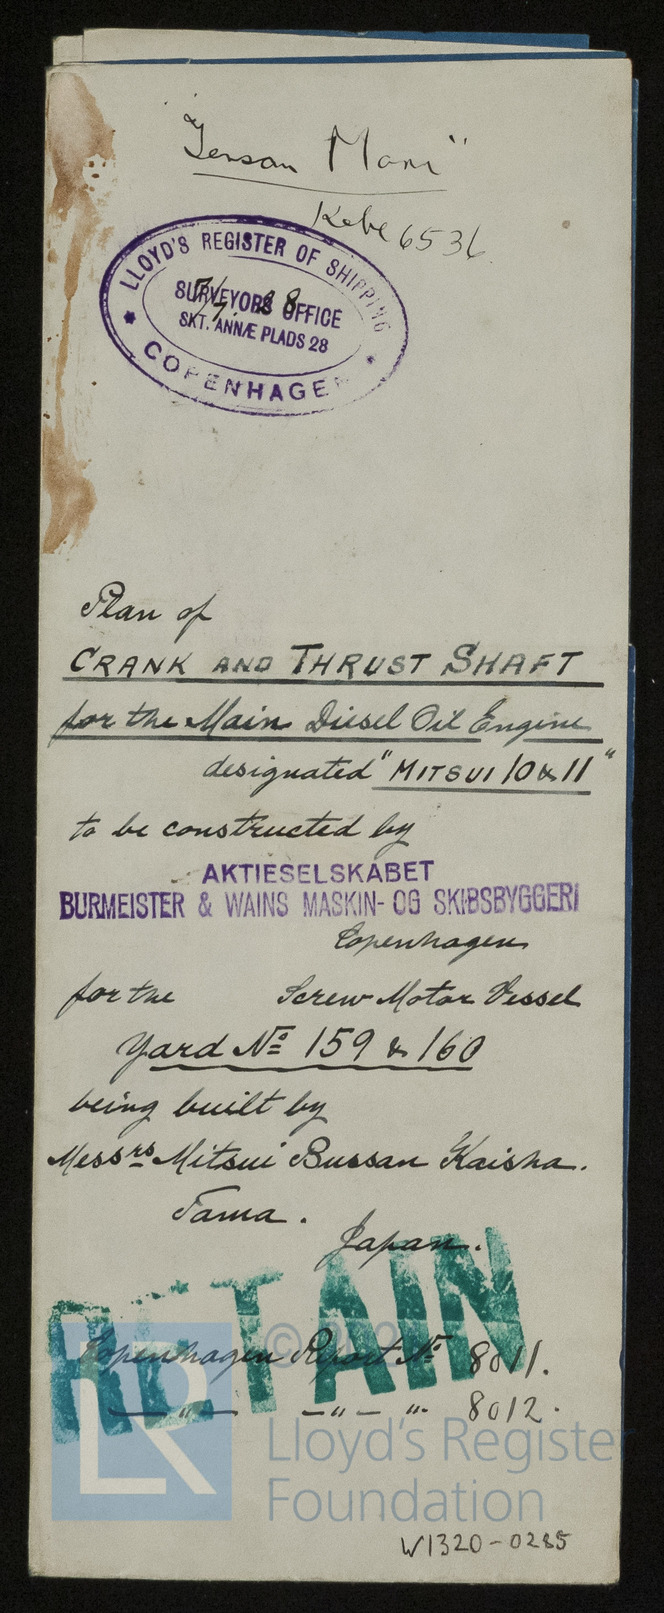 "Jensan Maru"
Kobe 6536
LLOYD'S REGISTER OF SHIPPING
SURVEYORS OFFICE
SKT. ANNÆ PLADS 28
COPENHAGEN
Plan of
CRANK AND THRUST SHAFT
for the Main Diesel Oil Engine
designated "MITSUI 10 & 11"
to be constructed by
AKTIESELSKABET
BURMEISTER & WAINS MASKIN- OG SKIBSBYGGERI
Copenhagen
for the Screw Motor Vessel
Yard No 159 & 160
being built by
Messrs Mitsui Bussan Kaisha.
Tama.
Japan.
RETAIN
Copenhagen Report No 8011.
— " — — " — ". 8012.
LR
Lloyd's Register
Foundation
W1320-0285